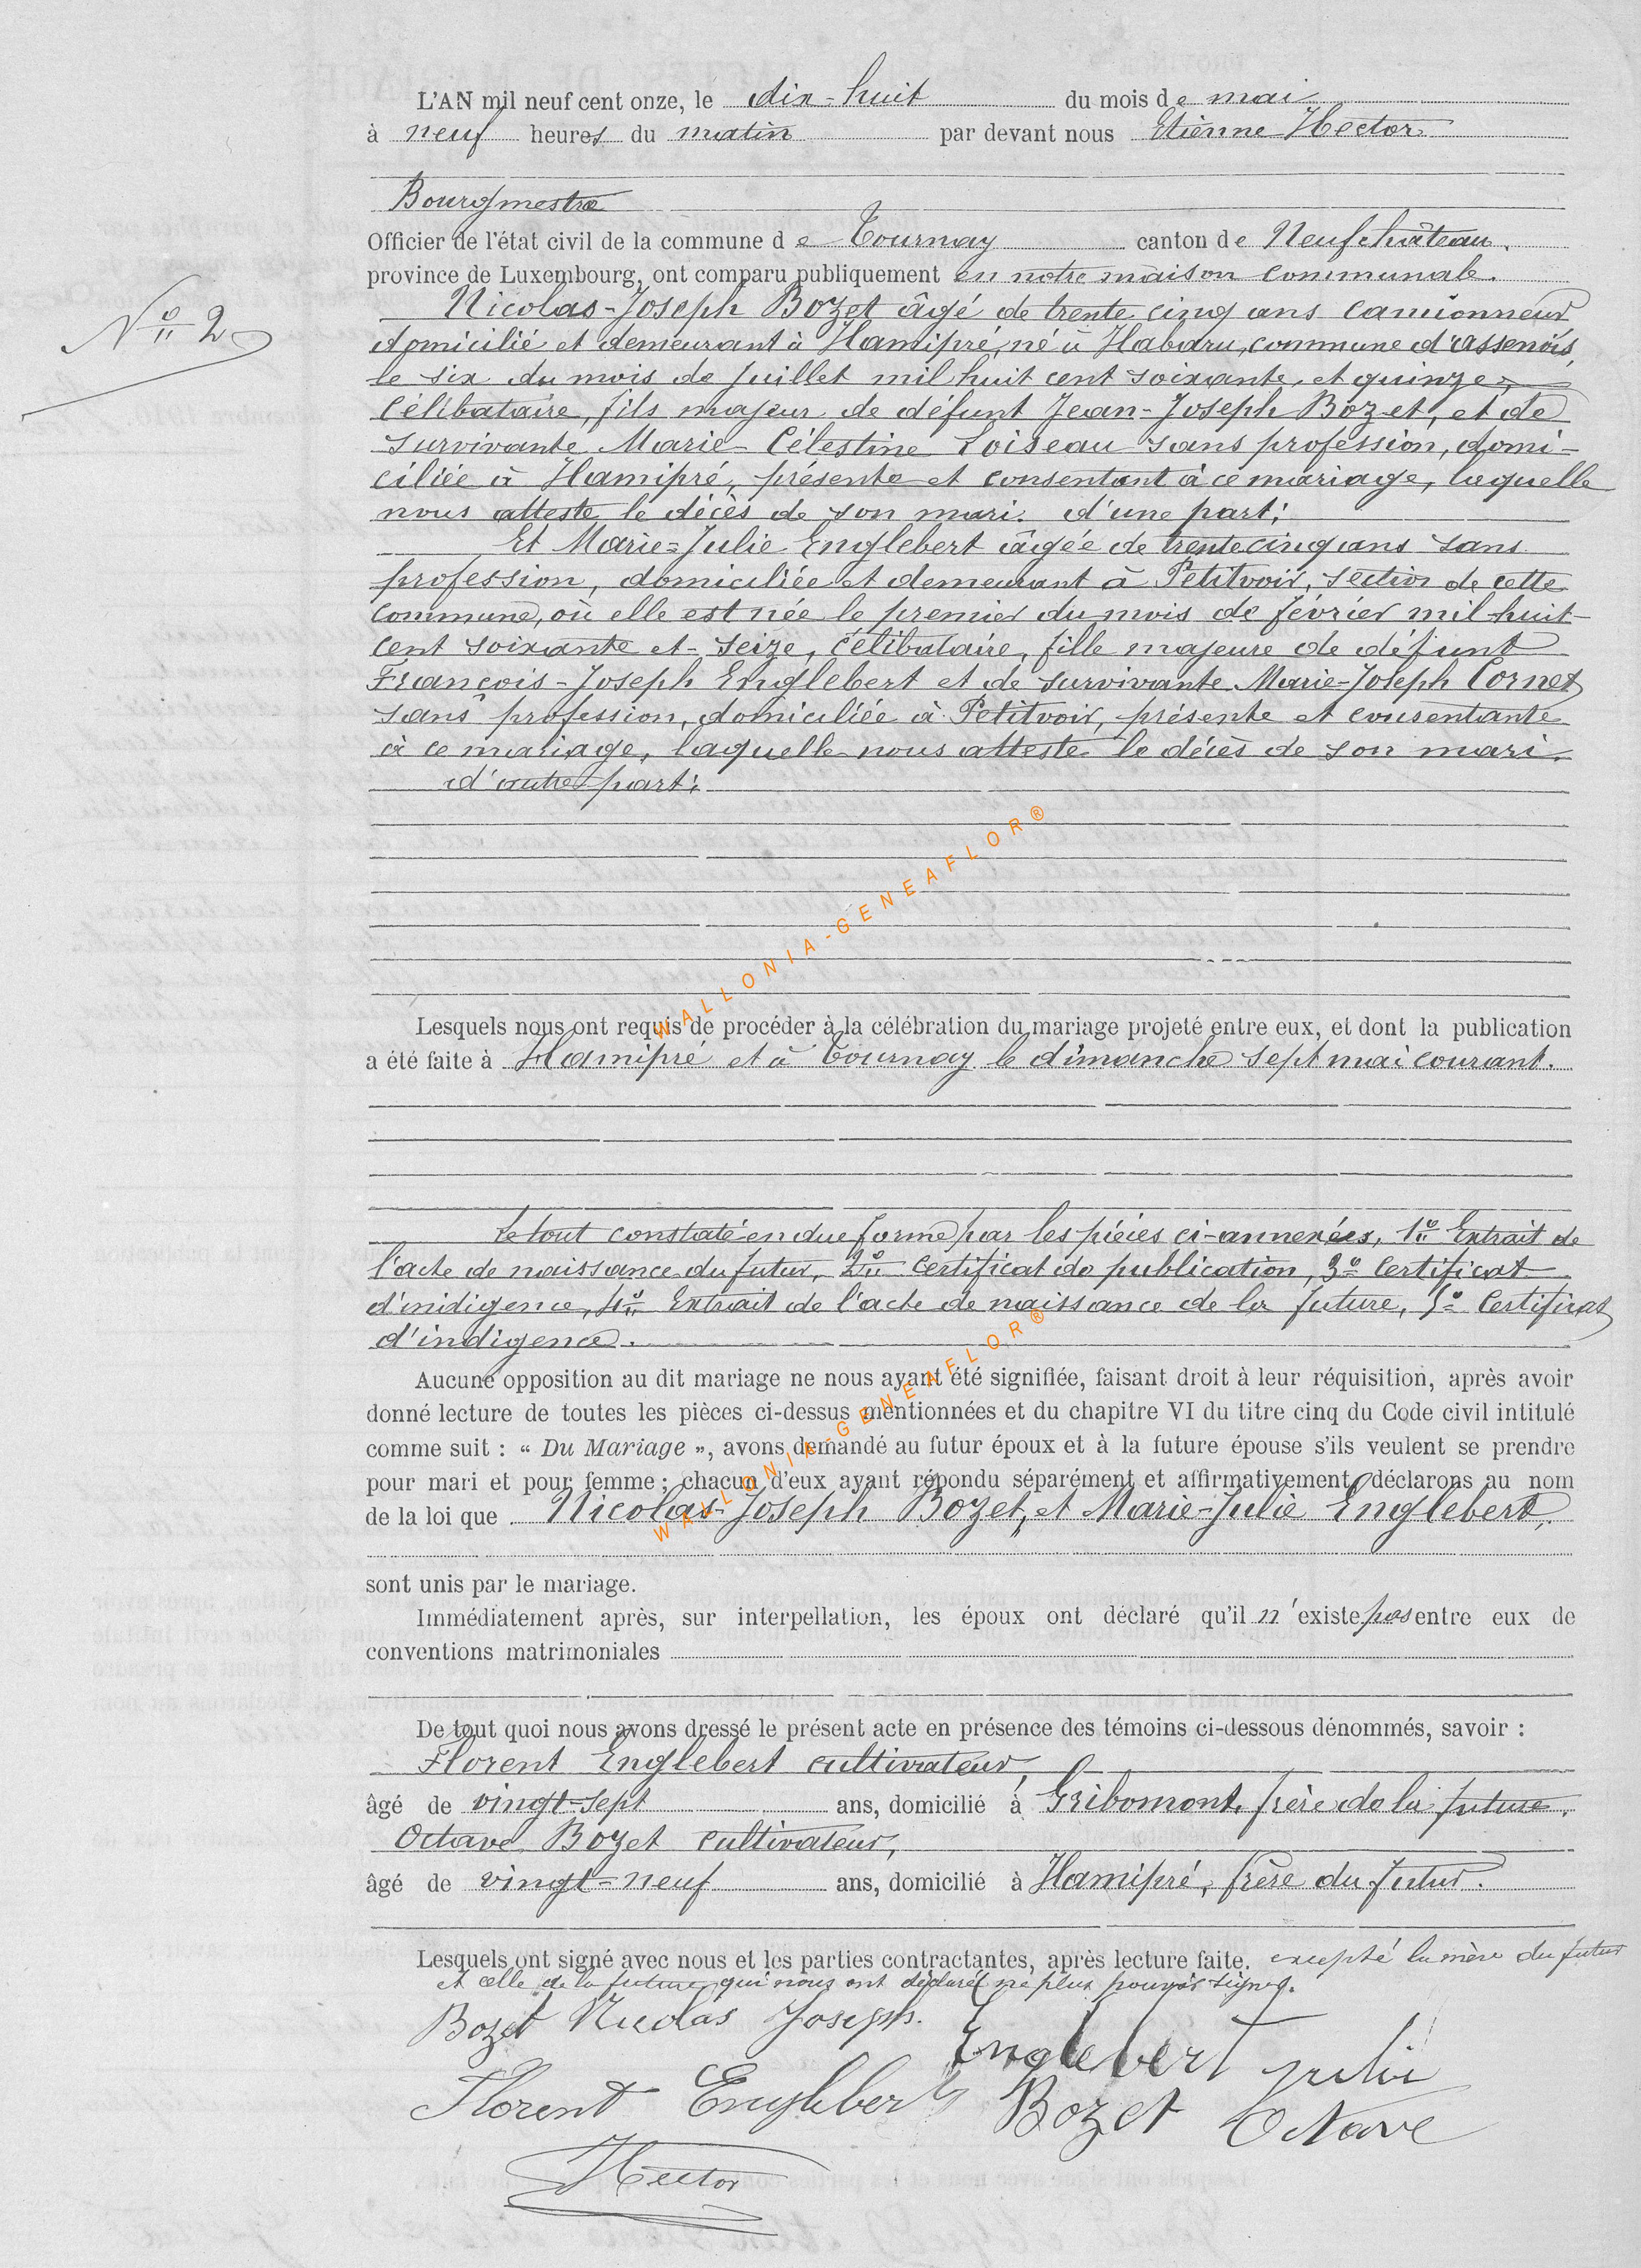 L'AN mil neuf cent onze, le dix-huit du mois de mai
à neuf heures du matin par devant nous Etienne Hector
Bourgmestre
Officier de l'état civil de la commune de Tournay canton de Neufchâteau.
province de Luxembourg, ont comparu publiquement en notre maison communale.
N° 2
Nicolas-Joseph Bozet âgé de trente cinq ans camionneur
domicilié et demeurant à Hamipré, né à Habaru, commune d'assenois,
le six du mois de Juillet mil huit cent soixante et quinze,
Célibataire, fils majeur de défunt Jean-Joseph Bozet, et de
survivante Marie-Célestine Loiseau sans profession, domi-
ciliée à Hamipré, présente et consentant à ce mariage, laquelle
nous atteste le décès de son mari. d'une part;
Et Marie-Julie Englebert âgée de trente cinq ans sans
profession, domiciliée et demeurant à Petitvoir, section de cette
commune, où elle est née le premier du mois de février mil huit
cent soixante et seize, célibataire, fille majeure de défunt
François-Joseph Englebert et de survivante Marie-Joseph Cornet
sans profession, domiciliée à Petitvoir, présente et consentante
à ce mariage, laquelle nous atteste le décès de son mari.
d'autre part;
WALLONIA-GENEAFLOR®
Lesquels nous ont requis de procéder à la célébration du mariage projeté entre eux, et dont la publication
a été faite à Hamipré et à Tournay le dimanche sept mai courant.
Le tout constaté en due forme par les pièces ci-annexées, 1° Extrait de
l'acte de naissance du futur, 2° Certificat de publication, 3° Certificat
d'inidigence, 4° Extrait de l'acte de naissance de la future, 5° Certificat
d'indigence.
WALLONIA-GENEAFLOR®
Aucune opposition au dit mariage ne nous ayant été signifiée, faisant droit à leur réquisition, après avoir
donné lecture de toutes les pièces ci-dessus mentionnées et du chapitre VI du titre cinq du Code civil intitulé
comme suit : « Du Mariage », avons demandé au futur époux et à la future épouse s'ils veulent se prendre
pour mari et pour femme ; chacun d'eux ayant répondu séparément et affirmativement, déclarons au nom
de la loi que Nicolas-Joseph Bozet, et Marie-Julie Englebert,
sont unis par le mariage.
Immédiatement après, sur interpellation, les époux ont déclaré qu'il n'existe pas entre eux de
conventions matrimoniales
De tout quoi nous avons dressé le présent acte en présence des témoins ci-dessous dénommés, savoir :
Florent Englebert cultivateur,
âgé de vingt-sept ans, domicilié à Gribomont, frère de la future.
Octave Bozet cultivateur,
âgé de vingt-neuf ans, domicilié à Hamipré, frère du futur.
Lesquels ont signé avec nous et les parties contractantes, après lecture faite. excepté la mère du futur
et celle de la future qui nous ont déclaré ne plus pouvoir signer.
Bozet Nicolas Joseph.
Englebert julie
Florent Englebert
Bozet Octave
Hector